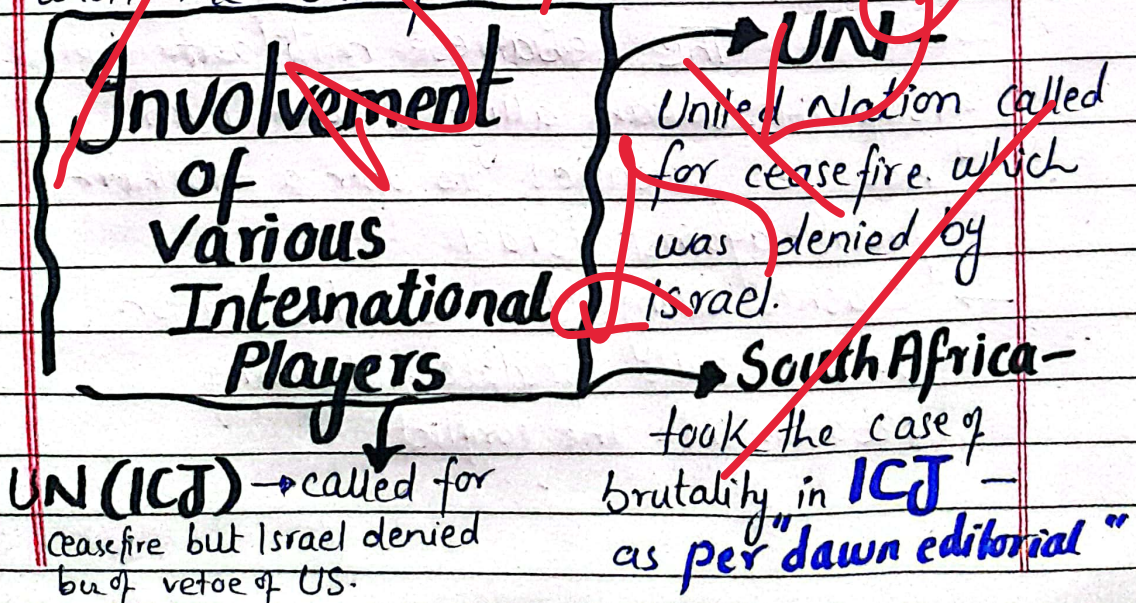 Involvement
of
Various
International
Players
UN -
United Nation called
for ceasefire. which
was denied by
israel.
South Africa -
took the case of
brutality in ICJ -
as per "dawn editorial"
UN (ICJ) → called for
ceasefire but Israel denied
of vetoe of US.